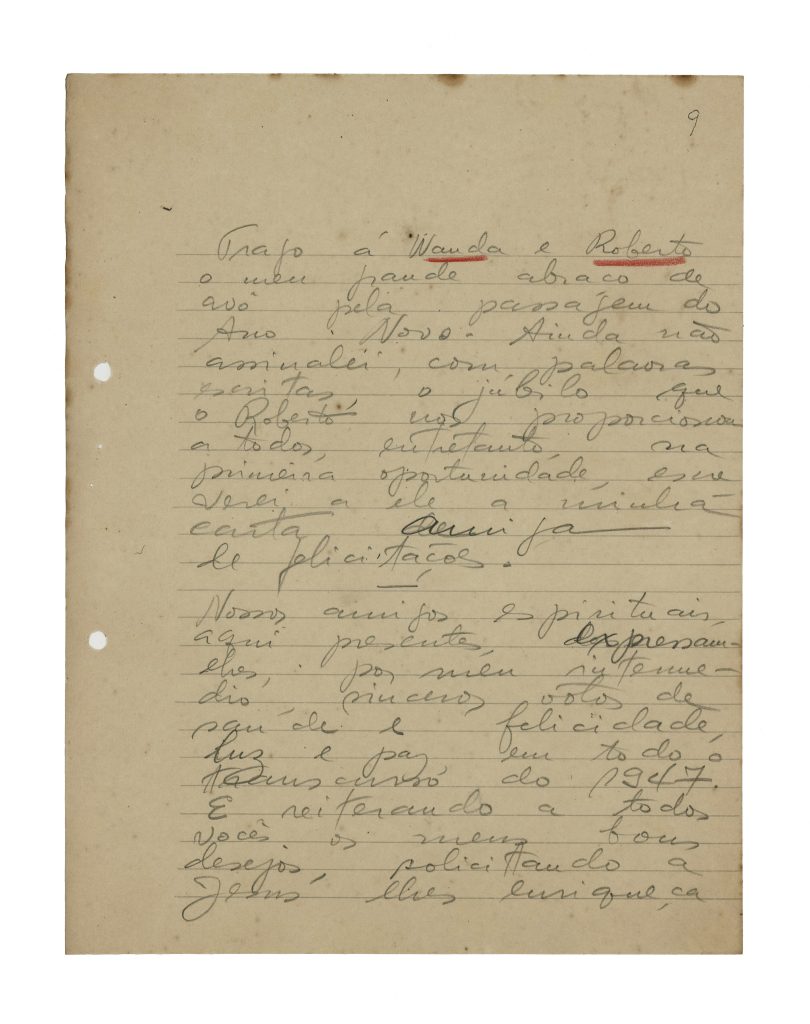 9
Trago á Wanda e Roberto
o meu grande abraço de
avô pela passagem do
Ano Novo. Ainda não
assinalei, com palavras
escritas, o júbilo que
o Roberto nos proporcionou
a todos, entretanto, na
primeira oportunidade, escre
verei a ele a minha
carta amiga
de felicitações.
Nossos amigos espirituais,
aqui presentes, expressam-
lhes, por meu intermé-
dio, sinceros votos de
saúde e felicidade,
luz e paz em todo o
transcurso do 1947.
E reiterando a todos
vocês os meus bons
desejos, solicitando a
Jesus lhes enriqueça